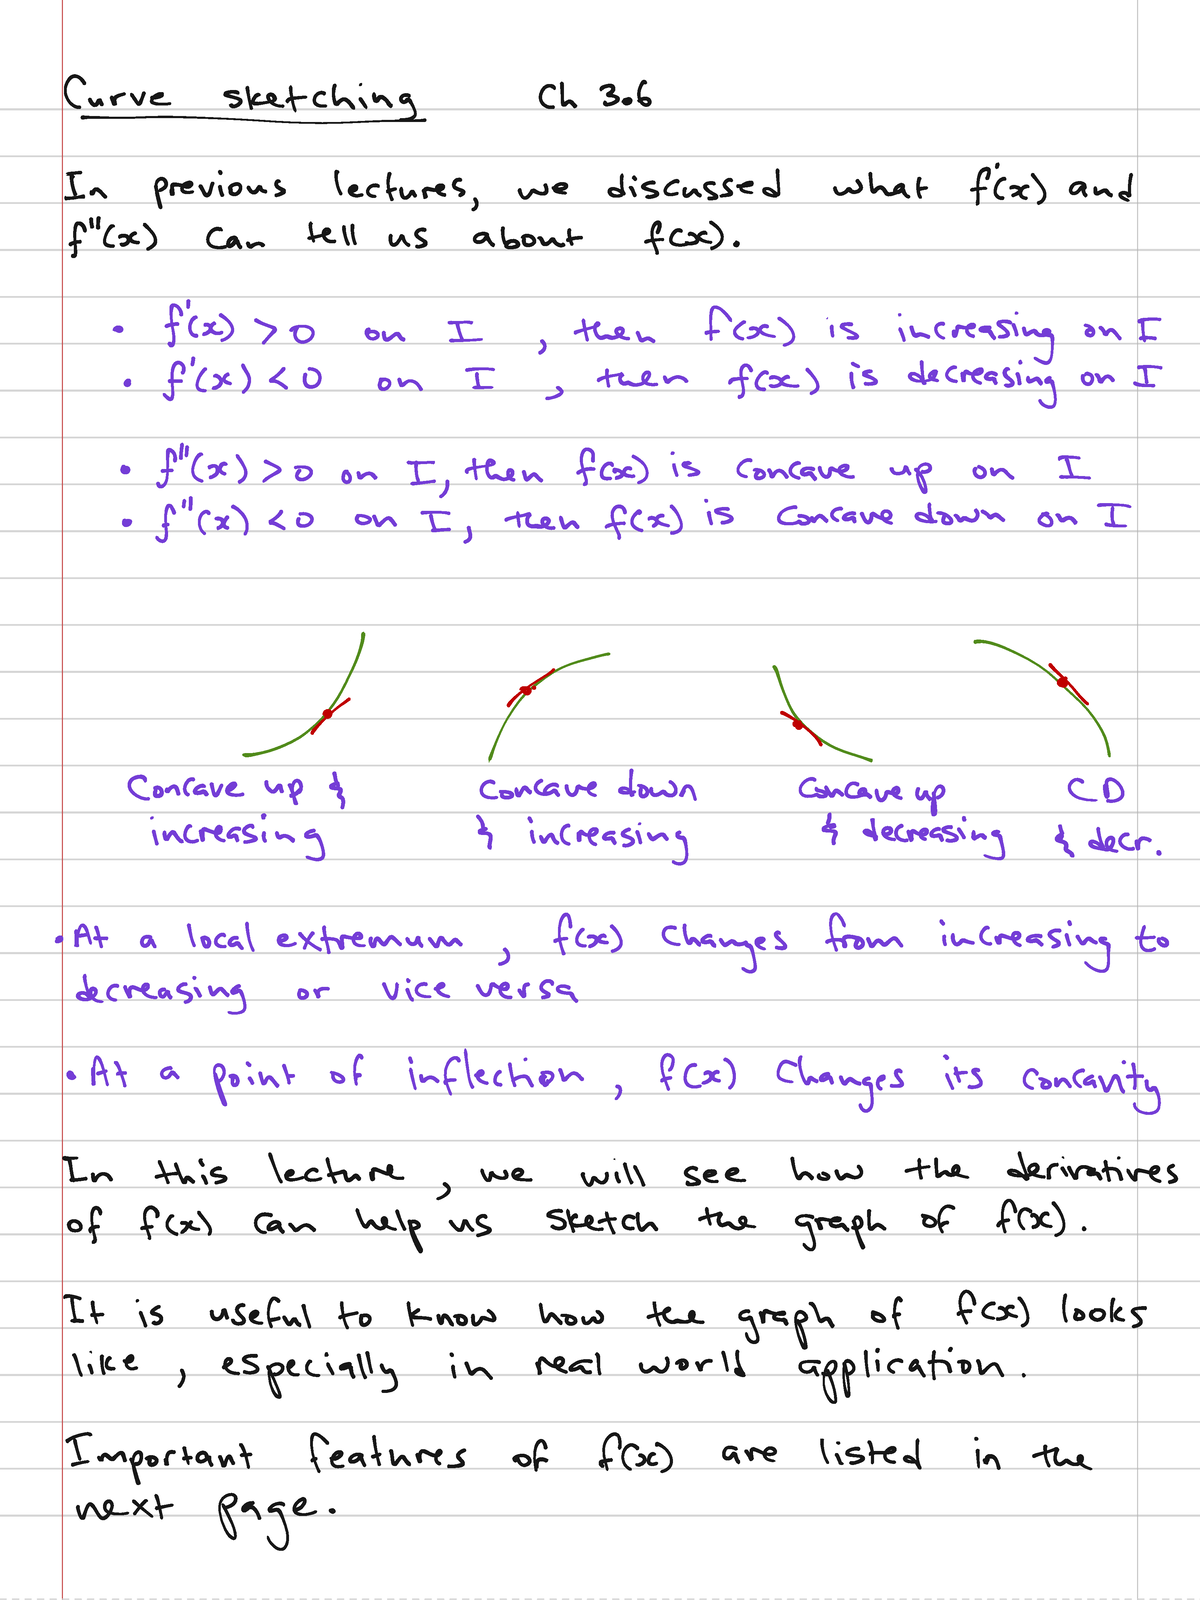 Curve sketching Ch 3.6
In previous lectures, we discussed what f'(x) and
f"(x) can tell us about f(x).
• f'(x) > 0 on I , then f(x) is increasing on I
• f'(x) < 0 on I , then f(x) is decreasing on I
• f"(x) > 0 on I, then f(x) is concave up on I
• f"(x) < 0 on I, then f(x) is concave down on I
Concave up &
increasing
Concave down
& increasing
Concave up
& decreasing
CD
& decr.
• At a local extremum , f(x) changes from increasing to
decreasing or vice versa
• At a point of inflection , f(x) changes its concavity
In this lecture , we will see how the derivatives
of f(x) can help us sketch the graph of f(x).
It is useful to know how the graph of f(x) looks
like , especially in real world application.
Important features of f(x) are listed in the
next page.